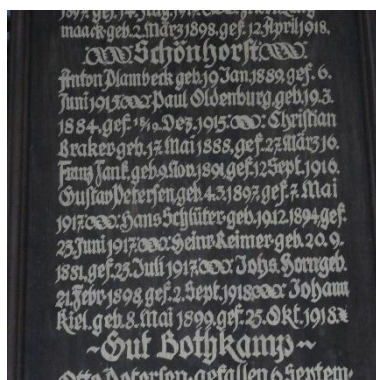 maack·geb. 2. März 1898. gef. 12. April 1918.
Schönhorst
Anton Plambeck geb. 19. Jan. 1889, gef. 6.
Juni 1915 Paul Oldenburg, geb. 19.3.
1884, gef. 18/19. Dez. 1915 Christian
Braker·geb. 17. Mai 1888, gef. 27. März 16.
Franz Jank, geb. 9. Nov. 1891 gef. 12. Sept. 1916.
Gustav Petersen, geb. 4.3. 1897, gef. 7. Mai
1917 Hans Schlüter·geb. 19.12. 1894, gef.
23. Juni 1917 Heinr. Reimer·geb. 20. 9.
1881, gef. 23. Juli 1917 Johs. Horn geb.
21. Febr. 1898, gef. 2. Sept. 1918 Johann
Kiel. geb. 8. Mai 1899, gef. 25. Okt. 1918
~Gut Bothkamp~
Otto Petersen·gefallen 6. Septem-